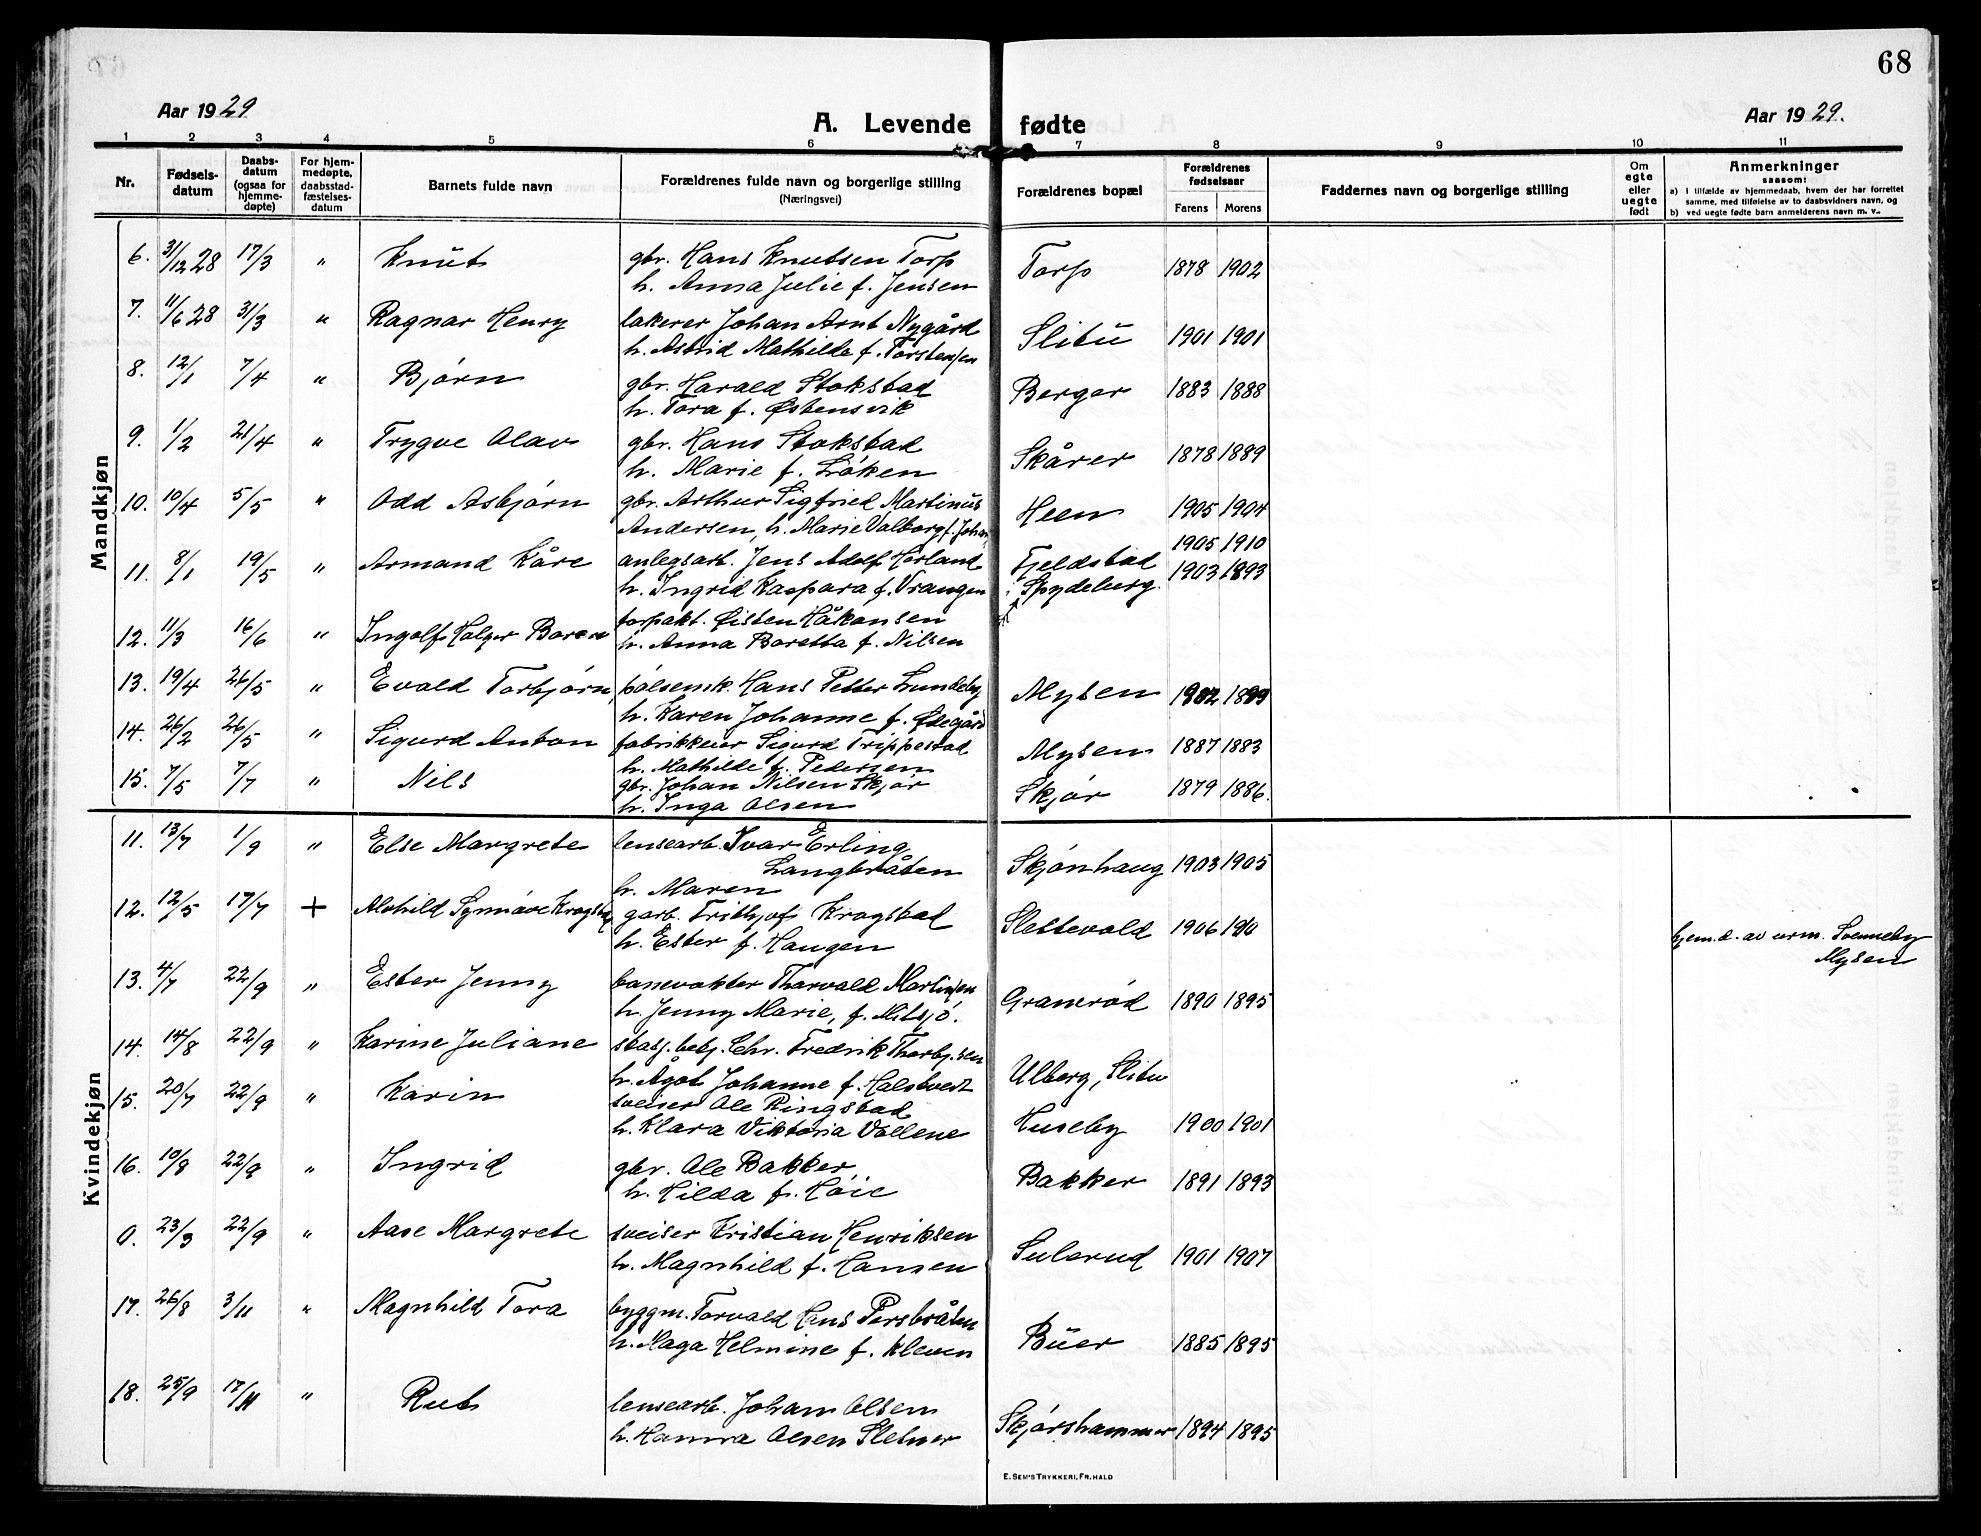 68
Aar 1929
A. Levende fødte
Aar 1929.
1 2 3 4 5 6 7 8 9 10 11
Nr.
Fødsels-
datum
Daabs-
datum
(ogsaa for
hjemme-
døpte)
For hjem-
medøpte,
daabsstad-
fæstelses-
datum
Barnets fulde navn
Forældrenes fulde navn og borgerlige stilling
(Næringsvei)
Forældrenes bopæl
Forældrenes
fødselsaar
Farens Morens
Faddernes navn og borgerlige stilling
Om
egte
eller
uegte
født
Anmerkninger
saasom:
a) I tilfælde av hjemmedaab, hvem der har forrettet
samme, med tilføielse av to daabsvidners navn, og
b) ved uegte fødte barn anmelderens navn m. v.
Mandkjøn
6. 31/12 28 17/3 " Knut gbr. Hans Knutsen Torp Torp 1878 1902
h. Anna Julie f. Jensen
7. 11/6 28 31/3 " Ragnar Henry lakerer Johan Arnt Nygård Slitu 1901 1901
h. Astrid Mathilde f. Torstensen
8. 12/1 7/4 " Bjørn gbr. Harald Stokstad Berger 1883 1888
h. Tora f. Østensvik
9. 1/2 21/4 " Trygve Olav gbr. Hans Stokstad Skårer 1878 1889
h. Marie f. Løken
10. 10/4 5/5 " Odd Asbjørn gbr. Arthur Sigfried Martinus Heen 1905 1904
Andersen, h. Marie Valborg f. Johan
1905 1910
11. 8/1 19/5 " Armand Kåre anlegsarb. Jens Adolf Hørland Fjeldstad 1903 1893
h. Ingrid Kaspara f. Vrangen i Spydeberg.
12. 11/3 16/6 " Ingolf Holger torpakt. Øisten Håkonsen
h. Anna Boretta f. Nilsen
13. 19/4 26/5 " Evald Torbjørn, pølsemk. Hans Petter Lundeby Mysen 1902
h. Karen Johanne f. Ødegård
14. 26/2 26/5 " Sigurd Anton fabrikkeier Sigurd Trippestad Mysen 1887 1883
h. Mathilde f. Pedersen
15. 7/5 7/7 " Nils gbr. Johan Nilsen Skjør Skjør 1879 1886.
h. Inga Olsen
Kvindekjøn
11. 13/7 1/9 " Else Margrete lensearb. Ivar Erling Skjønhaug 1903 1905
Langbråten
h. Maren
12. 12/5 17/7 + Alvhild Synnøve Krogstad garb. Frithjof Krogstad Slettevold 1906
h. Ester f. Haugen
hjem.d. av urm. Svenneby
Mysen
13. 4/7 22/9 " Ester Jenny banevokter Thorvald Martinsen Granerød 1890 1895
h. Jenny Marie, f. Mitsjø.
14. 14/8 22/9 " Karine Juliane stasj. betj. Chr. Fredrik Thorbj.sen Ulberg, Slitu
h. Ågot Johanne f. Halstvedt
15. 20/7 22/9 " Karin sveiser Ole Ringstad Huseby 1900 1901
h. Klara Viktoria Vollene
16. 10/8 22/9 " Ingrid gbr. Ole Bakker Bakker 1891 1893
h. Hilda f. Høie
0. 23/3 22/9 " Aase Margrete sveiser Kristian Henriksen Sulerud 1901 1907
h. Magnhild f. Hansen
17. 26/8 3/11 " Magnhild Tora byggm. Torvald Hans Persbråten Büer 1885 1895
h. Maga Helmine f. Kleven
18. 25/9 17/11 " Rut lensearb. Johan Olsen Skjørshammer 1894 1895
h. Hanna Olsen Sletner
E. SEM'S TRYKKERI, FR. HALD